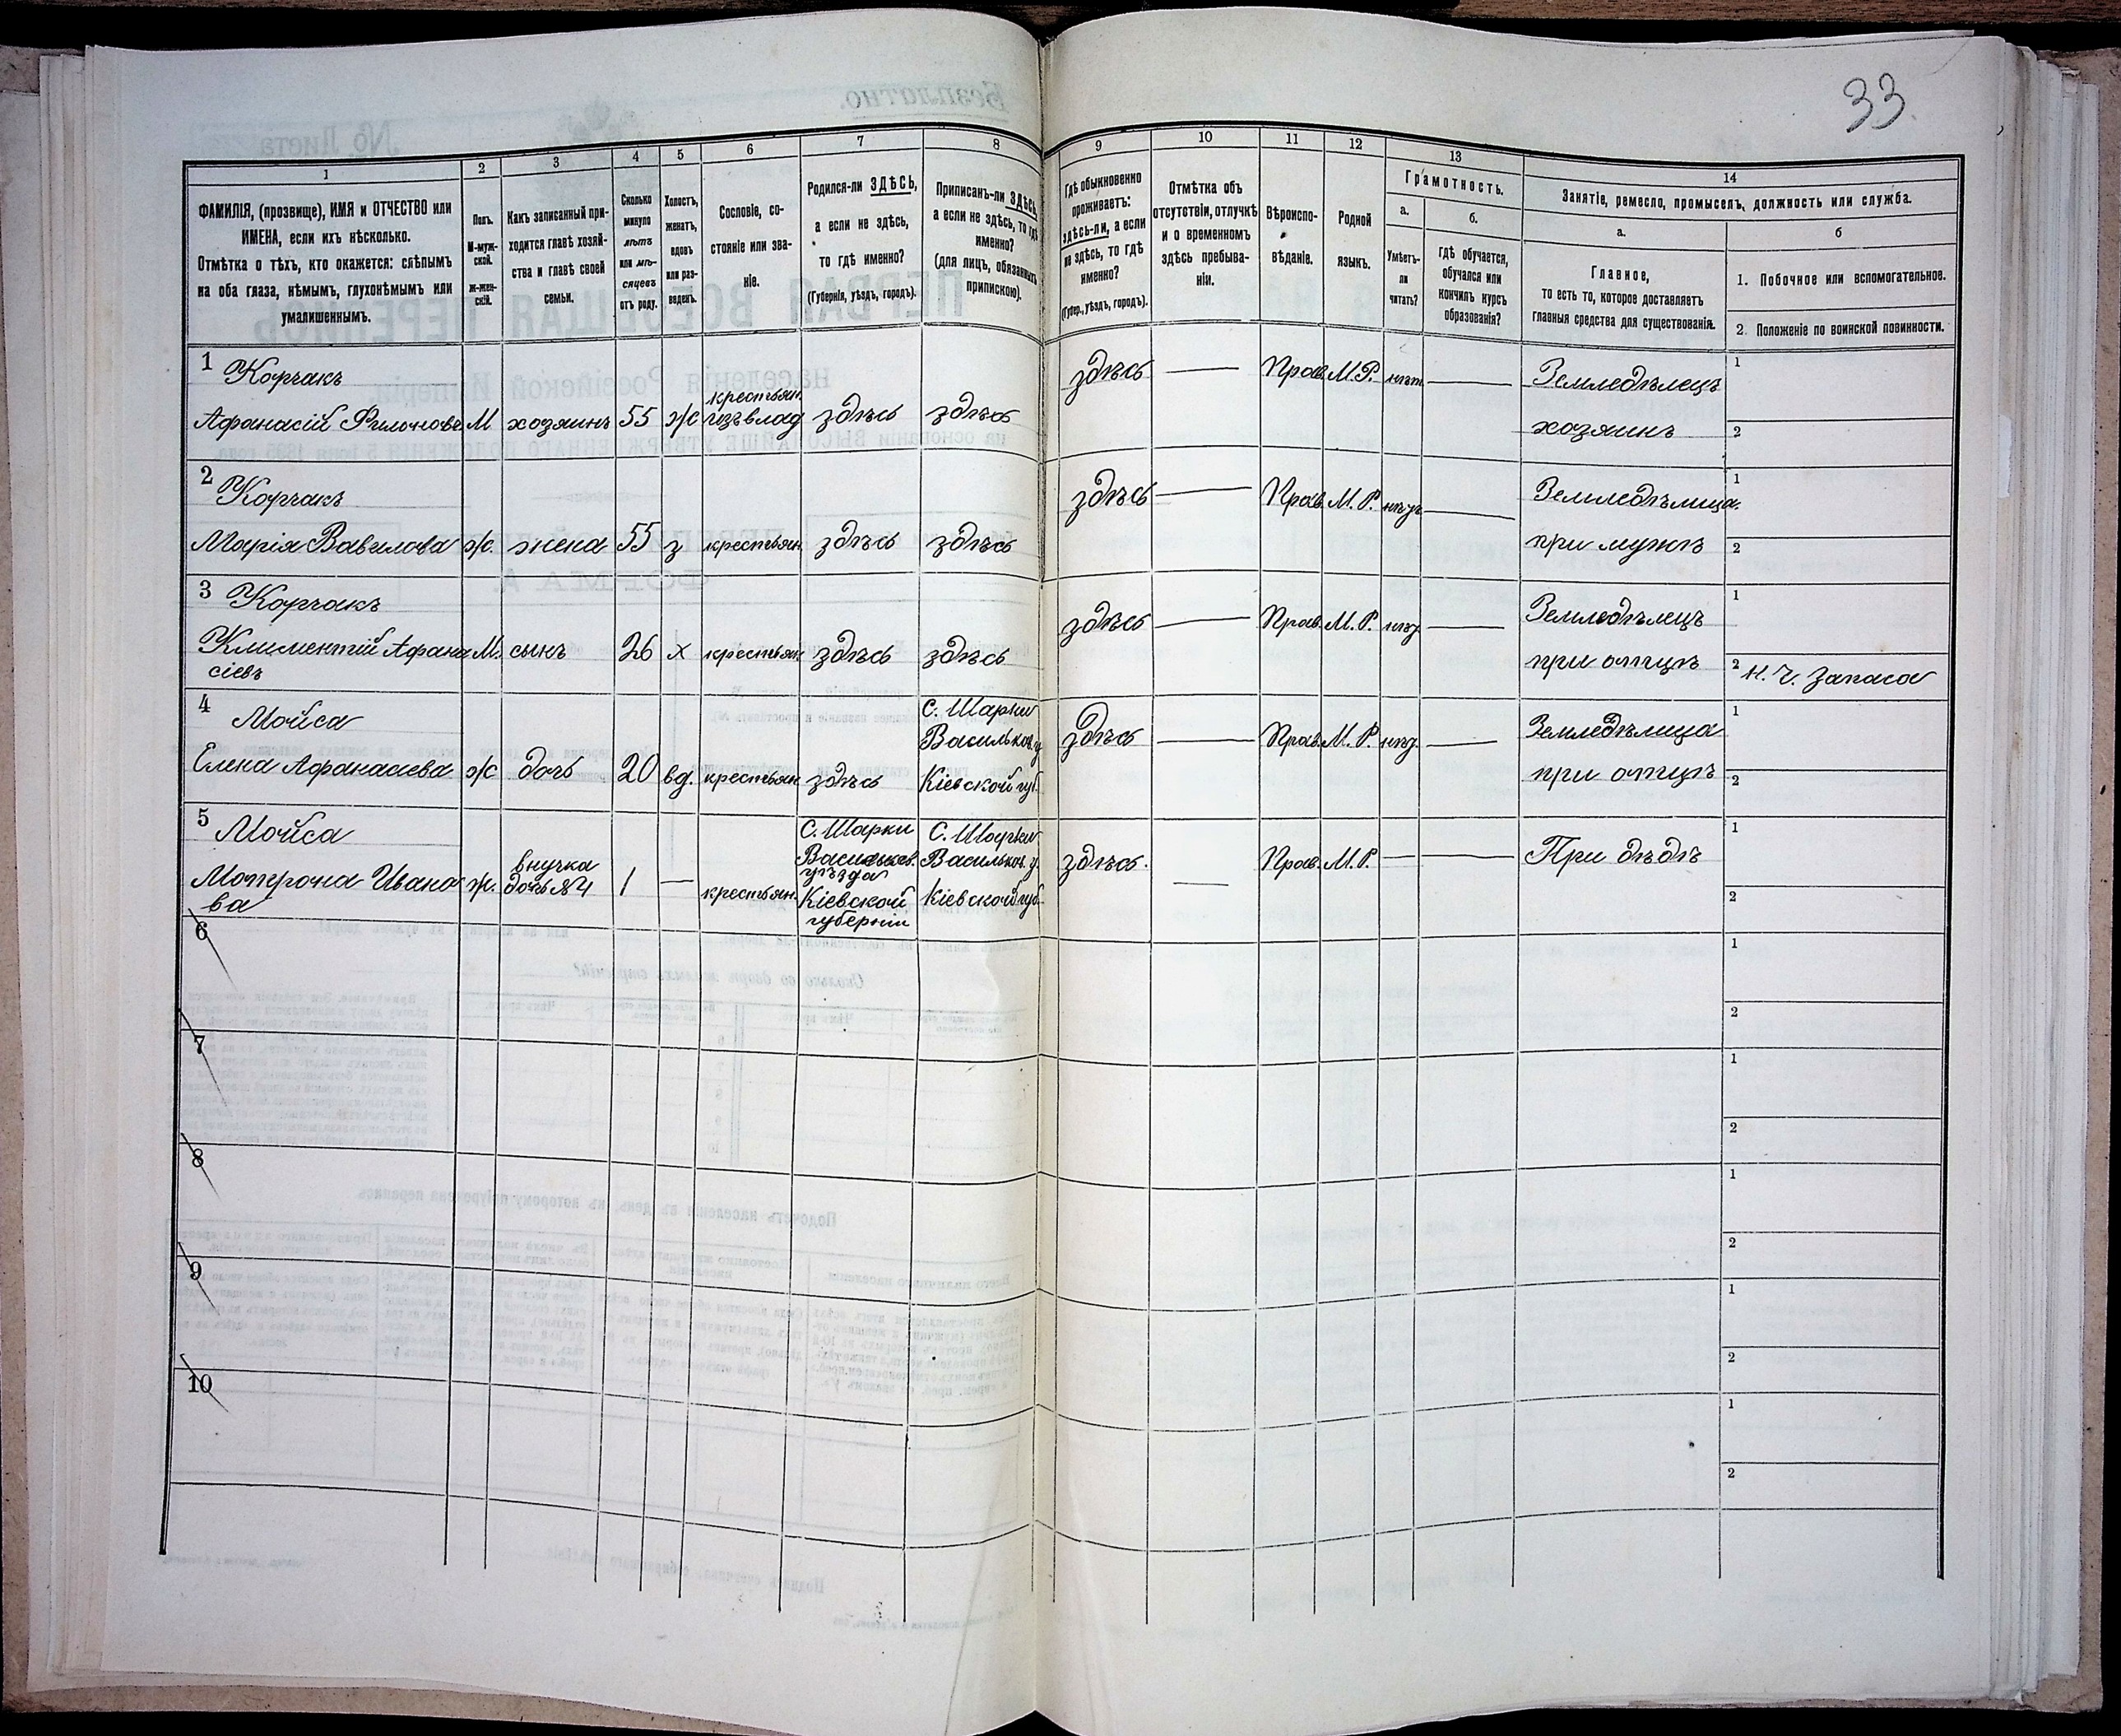 33
1
2
3
4
5
6
7
8
9
10
11
12
13
14
ФАМИЛІЯ, (прозвище), ИМЯ и ОТЧЕСТВО или
ИМЕНА, если ихъ нѣсколько.
Отмѣтка о тѣхъ, кто окажется: слѣпымъ
на оба глаза, нѣмымъ, глухонѣмымъ или
умалишеннымъ.
Полъ.
М-муж-
ской.
Ж-жен-
скій.
Какъ записанный при-
ходится главѣ хозяй-
ства и главѣ своей
семьи.
Сколько
минуло
лѣтъ
или мѣ-
сяцевъ
отъ роду.
Холостъ,
женатъ,
вдовъ
или раз-
веденъ.
Сословіе, со-
стояніе или зва-
ніе.
Родился-ли ЗДѢСЬ,
а если не здѣсь,
то гдѣ именно?
(Губернія, уѣздъ, городъ).
Приписанъ-ли ЗДѢСЬ,
а если не здѣсь, то гдѣ
именно?
(для лицъ, обязанныхъ
припискою).
Гдѣ обыкновенно
проживаетъ:
здѣсь-ли, а если
не здѣсь, то гдѣ
именно?
(Губер., уѣздъ, городъ).
Отмѣтка объ
отсутствіи, отлучкѣ
и о временномъ
здѣсь пребыва-
ніи.
Вѣроиспо-
вѣданіе.
Родной
языкъ.
Грамотность.
а.
Умѣетъ-
ли
читать?
б.
гдѣ обучается,
обучался или
кончилъ курсъ
образованія?
Занятіе, ремесло, промыселъ, должность или служба.
а.
Главное,
то есть то, которое доставляетъ
главныя средства для существованія.
б
1. Побочное или вспомогательное.
2. Положеніе по воинской повинности.
1 Корчакъ
Афанасій Филоновъ М хозяинъ 55 ж крестьян. здѣсь здѣсь здѣсь — Прав. М.Р. нѣт — Земледѣлецъ
хозяинъ
1
2
2 Корчакъ
Марія Вавилова ж. жена 55 з крестьян. здѣсь здѣсь здѣсь — Прав. М.Р. нѣт — Земледѣлица
при мужѣ
1
2
3 Корчакъ
Климентій Афана
сіевъ М. сынъ 26 х крестьян здѣсь здѣсь здѣсь — Прав. М.Р. нѣт — Земледѣлецъ
при отцѣ
1
2 Н. Ч. Запаса
4 Мойса
Елена Афанасіева ж дочь 20 вд. крестьян здѣсь С. Шарки
Васильков. у
Кіевской губ. здѣсь — Прав. М.Р. нѣт — Земледѣлица
при отцѣ
1
2
5 Мойса
Мотрона Ивано
ва ж. внучка
дочь №4 1 — крестьян. С. Шарки
Васильков.
уѣзда
Кіевской
губерніи С. Шарки
Васильков. у.
Кіевской губ. здѣсь. — Прав. М.Р — — При дѣдѣ
1
2
6
1
2
7
1
2
8
1
2
9
1
2
10
1
2